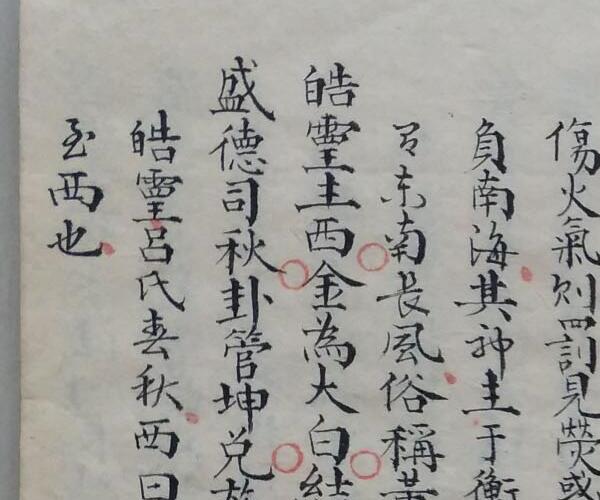 傷火氣則罰見熒惑
負南海其神主于衡
日東南長風俗稱黃
皓靈主西金為大白結
盛德司秋卦管坤兌
皓靈呂氏春秋西曰
至西也